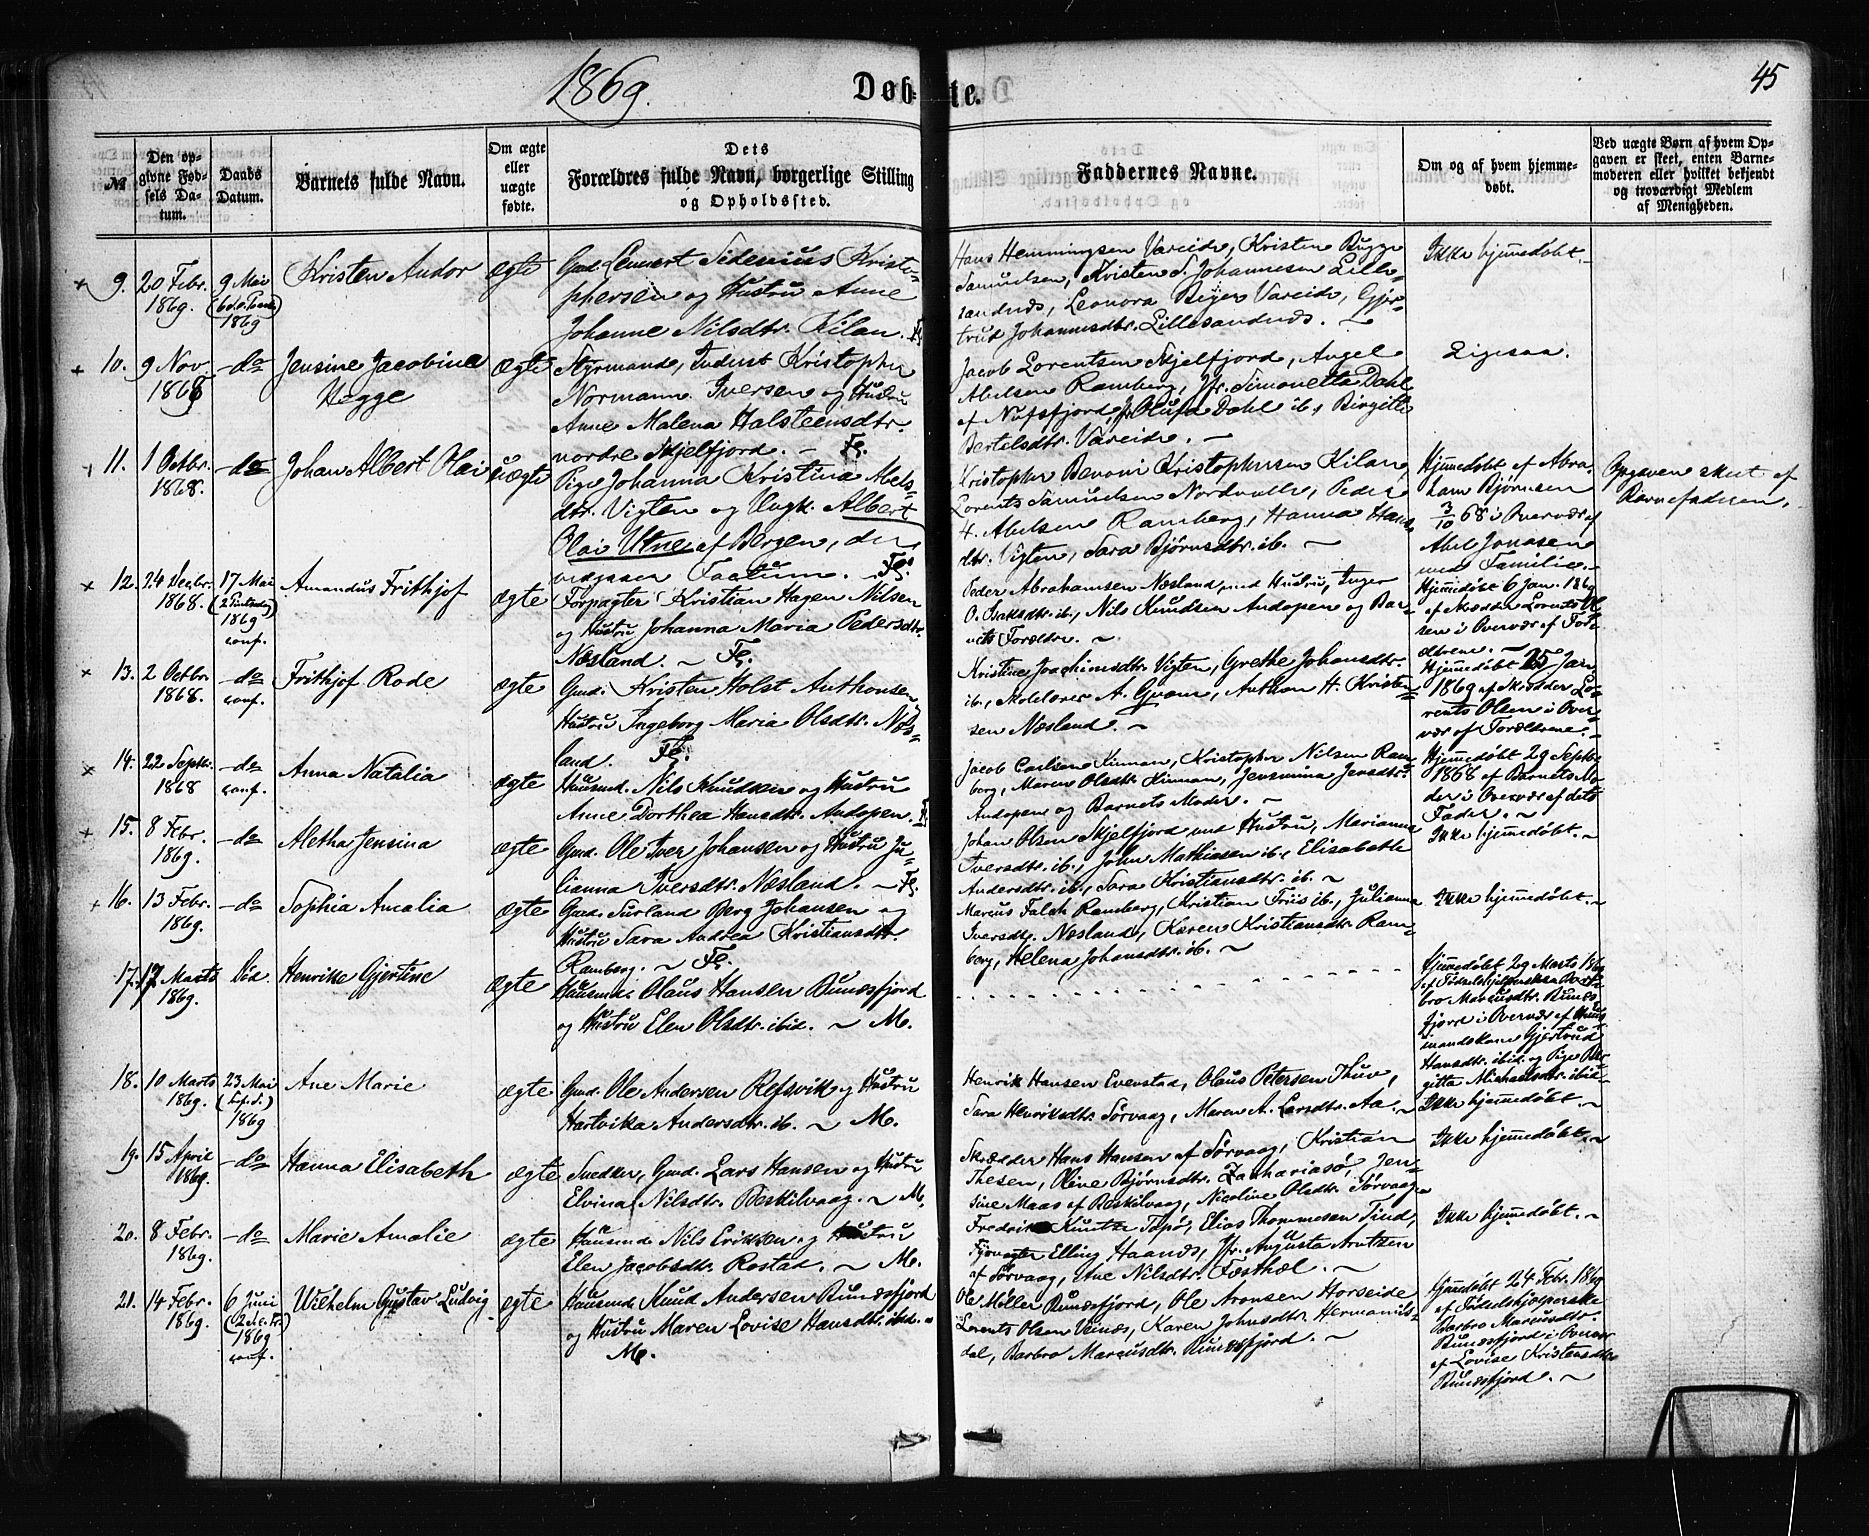 1869.
Døb-
te.
45
№
Den op-
givne Fød-
sels Da-
tum.
Daabs
Datum.
Barnets fulde Navn.
Om ægte
eller
uægte
fødte.
Dets
Forældres fulde Navn, borgerlige Stilling
og Opholdssted.
Faddernes Navne.
Om og af hvem hjemme-
døbt.
Ved uægte Børn af hvem Op-
gaven er skeet, enten Barne-
moderen eller hvilket bekjendt
og troværdigt Medlem
af Menigheden.
9.
20 Febr.
1869.
9 Mai
1869
Kristen Andor
ægte
Gmd. Lennert Sidenius Kristo-
phersen og Hustru Anne
Johanne Nilsdtr. Kilan.
Hans Hemmingsen Vareide, Kristen Bugge
Samuelsen, Kristen S. Johannesen Lille-
sandnæs, Leonora Beyer Vareide, Gjer-
trud Johannesdtr. Lillesandnæs.
Ikke hjemmedøbt.
10.
9 Nov.
1868
do
Jensine Jacobine
Hegge
ægte
Styrmand, Inderst Kristopher
Normann Iversen og Hustru
Anne Malena Halsteensdtr.
nordre Skjelfjord. Fl.
Jacob Lorentsen Skjelfjord, Angel
Abelsen Ramberg, Jfr. Simonetta Dahl
af Nufsfjord, Jfr. Olufa Dahl ib., Birgitte
Bertelsdtr. Vareide.
Ligesaa.
11.
1 Octbr.
1868.
do
Johan Albert Olai
uægte
Pige Johanna Kristina Abels-
dtr. Vigten og Ungk. Albert
Olai Utne af Bergen, der
vedgaaer Factum. Fl.
Kristopher Benoni Kristophersen Kilan,
Lorents Samuelsen Nordvalle, Peder
H. Abelsen Ramberg, Hanna Hans
dtr. Vigten, Sara Bjørnsdtr. ib.
Hjemmedøbt af Abra-
ham Bjørnsen
3/10 68 i Overvær af
Abel Jonassen
med Familie.
Opgaven skeet af
Barnefaderen.
12.
24 Decbr.
1868.
17 Mai
1869
conf.
Amandus Frithjof
ægte
Forpagter Kristian Hagen Nilsen
og Hustru Johanna Maria Pedersdtr.
Næsland. Fl.
Peder Abrahamsen Næsland med Hustru, Inger
O. Isaksdtr. ib., Nils Knudsen Andopen og Bar-
nets Forældre.
Hjemmedøbt 6 Jan. 1869
af Skrædder Lorents Ol
sen i Overvær af For-
ældrene.
13.
2 Octbr.
1868.
do
conf.
Frithjof Rode
ægte
Gmd. Kristen Holst Anthonsen,
Hustru Ingeborg Maria Olsdtr. Næs-
land. Fl.
Kristine Joachimsdtr. Vigten, Grethe Johansdtr.
ib., Skolelærer A. Gvam, Anthon H. Kristen
sen Næsland.
Hjemmedøbt 25 Jan.
1869 af Skrædder Lo-
rents Olsen i Over-
vær af Forældrene.
14.
22 Septbr.
1868
do
conf.
Anna Natalia
ægte
Huusmd. Nils Knudsen og Hustru
Anne Dorthea Hansdtr. Andopen.
Jacob Carlsen Kirnan, Kristopher Nilsen Ram-
berg, Maren Olsdtr. Kirnan, Jensmina Jensdtr.
Andopen og Barnets Moder.
Hjemmedøbt 29 Septbr
1868 af Barnets Mo-
der i Overvær af dets
Fader.
15.
8 Febr.
1869.
do
Aletha Jensina
ægte
Gmd. Ole Iver Johansen og Hustru Ju-
lianna Iversdtr. Næsland. Fl.
Johan Olsen Skjelfjord med Hustru, Marianna
Iversdtr. ib., John Mathiasen ib., Elisabeth
Andersdtr. ib., Sara Kristiansdtr. ib.
Ikke hjemmedøbt.
16.
13 Febr.
1869.
do
Sophia Amalia
ægte
Gmd. Surland Berg Johansen og
Hustru Sara Andrea Kristiansdtr.
Ramberg. Fl.
Marcus Falch Ramberg, Kristian Friis ib., Julianna
Iversdtr. Næsland, Karen Kristiansdtr. Ram-
berg, Helena Johansdtr. ib.
Ikke hjemmedøbt.
17.
17 Marts
1869.
Død.
Henrikke Gjertine
ægte
Huusmd. Olaus Hansen Bunæsfjord
og Hustru Elen Olsdtr. ibid. M.
Hjemmedøbt 29 Marts 1869
af Fødselshjælpersken Bar-
bro Marcusdtr. Bunæs-
fjord i Overvær af Huus-
mandskone Gjertrud
Hansdtr. ibid. og Pige Bir-
gitta Michaelsdtr. ibid.
18.
10 Marts
1869.
23 Mai
1869
Ane Marie
ægte
Gmd. Ole Andersen Refsvik og Hustru
Hartvika Andersdtr. ib. M.
Henrik Hansen Evenstad, Olaus Petersen Thuv,
Sara Henriksdtr. Sørvaag, Maren A. Larsdtr. Aa.
Ikke hjemmedøbt.
19.
15 April
1869.
do
Hanna Elisabeth
ægte
Snedker, Gmd. Lars Hansen og Hustru
Elvina Nilsdtr. Beskilvaag. M.
Skrædder Hans Hansen af Sørvaag, Kristian
Thesen, Oline Bjørnsdtr. Zachariasø, Jen-
sine Maas af Reskilvaag, Nicoline Olsdtr. Sørvaag.
Ikke hjemmedøbt.
20.
8 Febr.
1869.
do
Marie Amalie
ægte
Huusmd. Nils Eriksen og Hustru
Elen Jacobsdtr. Rostad. M.
Fredrik Kuntze Topø, Elias Thommesen Tind,
Elling Haanæs, Jfr. Augusta Arntzen
af Sørvaag, Ane Nilsdtr. Festhæl.
Ikke hjemmedøbt.
21.
14 Febr.
1869.
6 Juni
1869
conf.
Wilhelm Gustav Ludvig
ægte
Huusmd. Knud Andersen Bunæsfjord
og Hustru Maren Lovise Hansdtr. ibid.
M.
Ole Møller Bunæsfjord, Ole Aronsen Horseide
Lorents Olsen Vinæs, Karen Johnsdtr. Hermanns-
dal, Barbro Marcusdtr. Bunæsfjord.
Hjemmedøbt 24 Febr. 1869
af Fødselshjælperske
Barbro Marcusdtr.
Bunæsfjord i Overvær
af Lovise Kristensdtr.
Bunæsfjord.